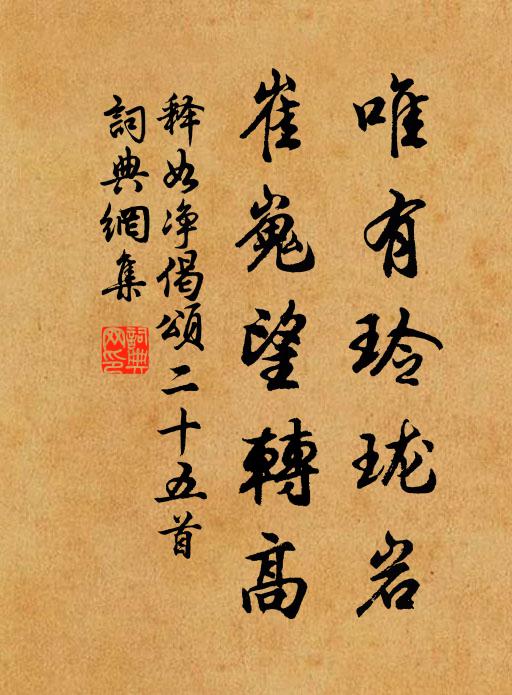 唯有玲珑岩
崔嵬望轉高
释如净偈頌二十五首
詞典網集
詞典网印